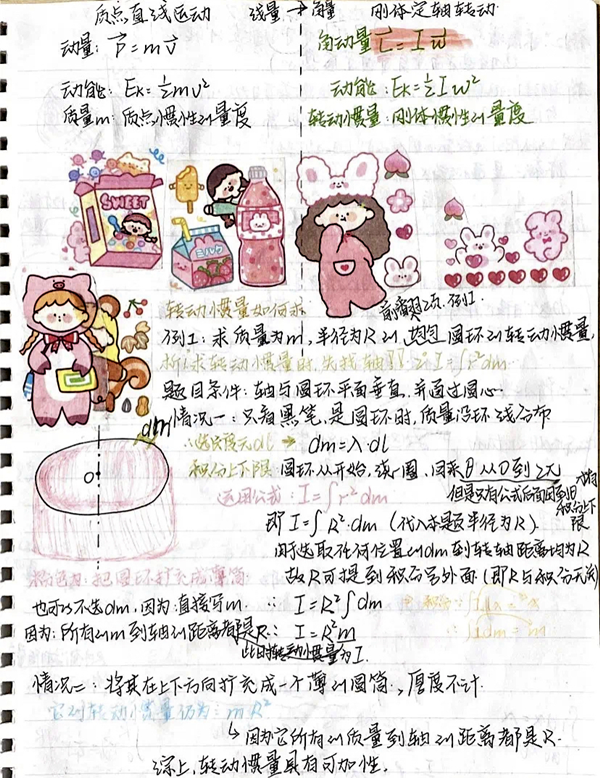 质点直线运动 线量→角量 刚体定轴转动
动量: P=mV 角动量 L=Iw
动能: Ek=½mv² 动能: Ek=½Iw²
质量m: 质点惯性的量度 转动惯量: 刚体惯性的量度
SWEET
ミルク
转动惯量如何求 前翻2页.例1.
例1: 求质量为m, 半径为R的 圆环的转动惯量,
析:求转动惯量时,先找轴 2° I=∫r²dm
题目条件: 轴与圆环平面垂直, 并通过圆心
dm 情况一: 只看黑笔, 是圆环时, 质量沿环线分布
∴选长度元dl ⇒ dm=λ·dl
积分上下限 圆环从开始, 绕一圈, 回来 θ从0到2π
运用公式: I=∫r²dm 但是只有公式后面图到θ
积分上下限
即 I=∫R²·dm (代入本题半径为R).
o
因选取任何位置的dm到转轴距离均为R
粉色为: 把圆环扩充成薄筒 故R可提到积分号外面 (即R与积分无关)
也可以不选dm, 因为: 直接写m. ∴ I=R²∫dm 积分: ∫1dx=x
因为: 所有的m到轴的距离都是R ∴ I=R²m ∴∫1dm=m
此时转动惯量为I.
情况二: 将其在上下方向扩充成一个薄的圆筒, 厚度不计.
它的转动惯量仍为: mR²
↳因为它所有的质量到轴的距离都是R.
综上, 转动惯量具有可加性.